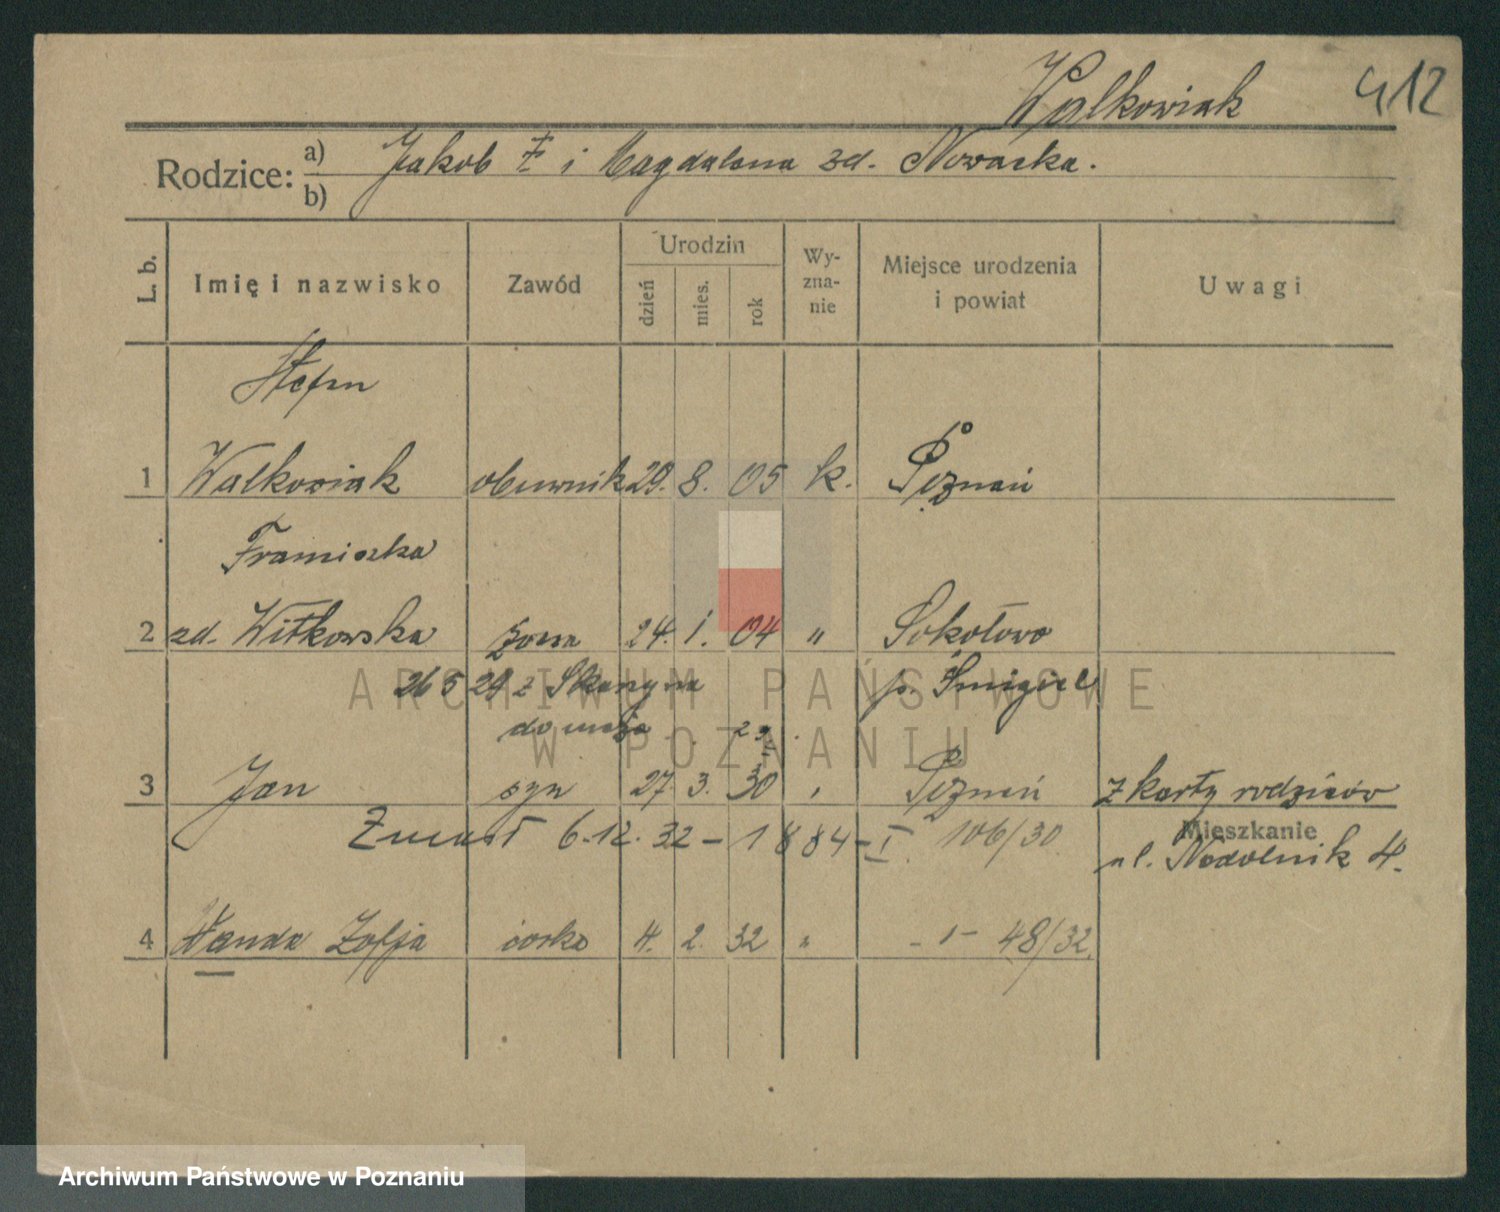 Walkowiak 412
Rodzice: a) Jakob i Magdalena zd. Nowacka.
b)
L. b. Imię i nazwisko Zawód Urodzin dzień mies. rok Wyznanie Miejsce urodzenia i powiat Uwagi
Stefan
1 Walkowiak obuwnik 29. 8. 05 k. Poznań
Franciszka
2 zd. Witkowska żona 24. 1. 04 " Sokołowo
26 5 29 z p. Śmigiel
do męża 29
3 Jan syn 27. 3. 30 Poznań z karty rodziców
Zmarł 6.12.32 – 1884 – I 106/30 Mieszkanie
ul. Nadolnik 4.
4 Wanda Zofja córka 4. 2. 32 " - 1 - 48/32.
ARCHIWUM PAŃSTWOWE
W POZNANIU
Archiwum Państwowe w Poznaniu